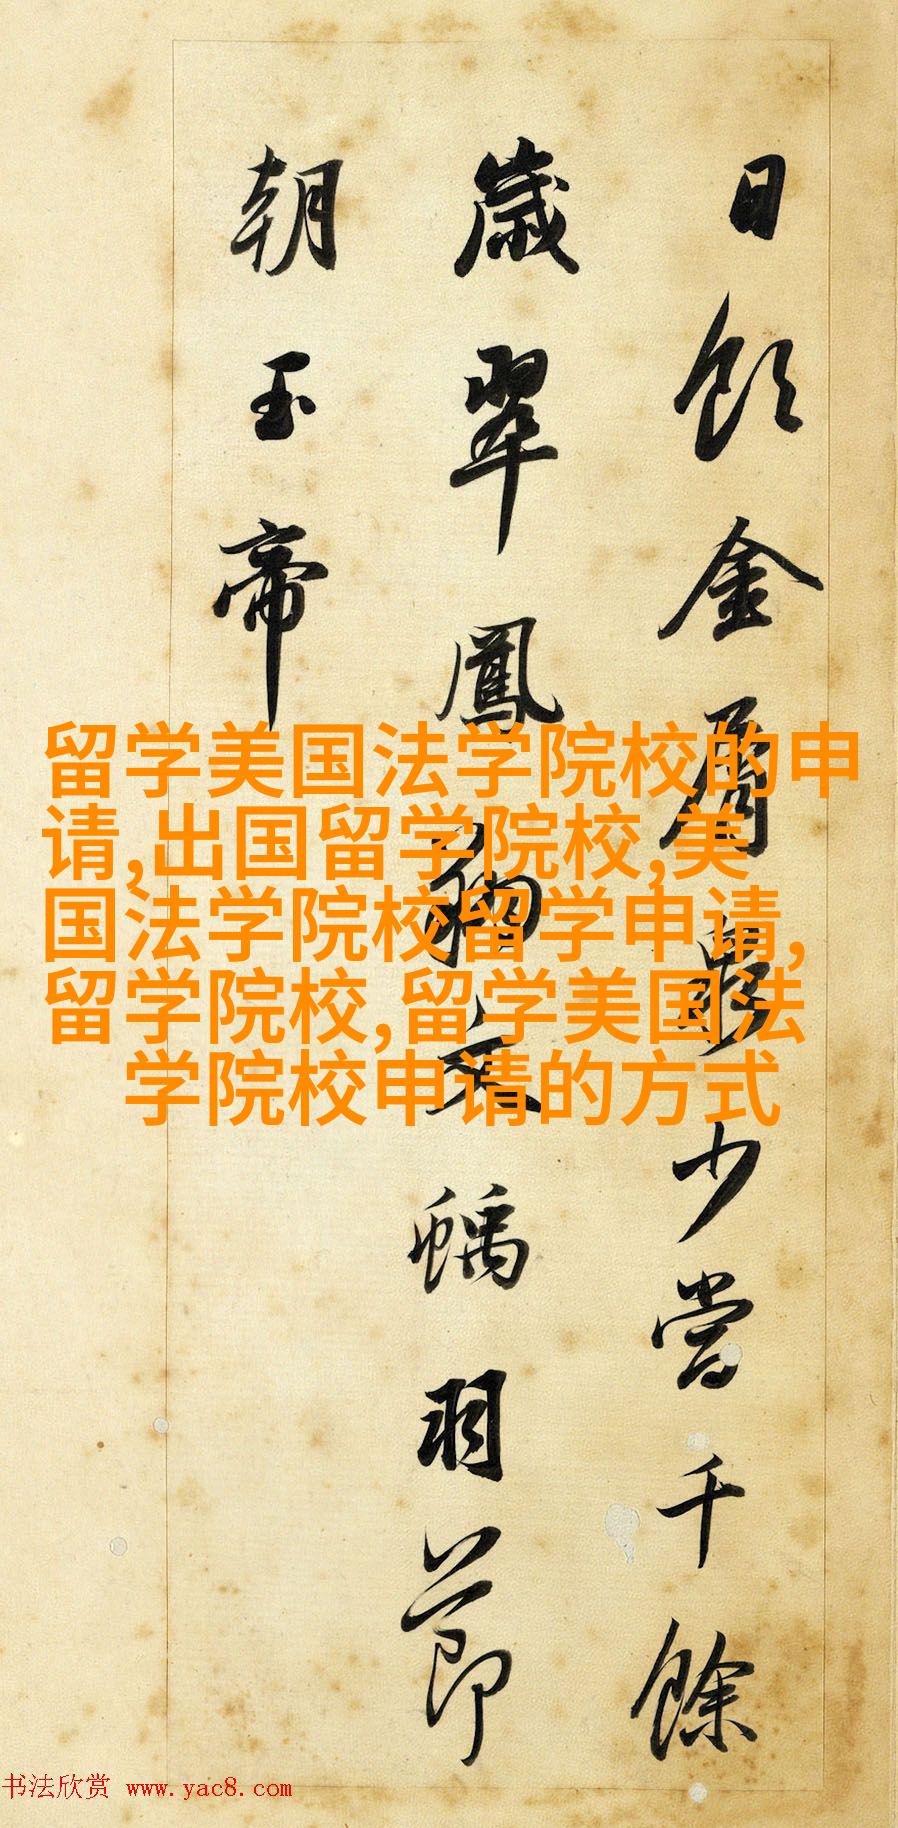 日飲金屑泉少當千餘
歲翠鳳文螭羽節
朝玉帝
留学美国法学院校的申
请,出国留学院校,美
国法学院校留学申请,
留学院校,留学美国法
学院校申请的方式
书法欣赏 www.yac8.com